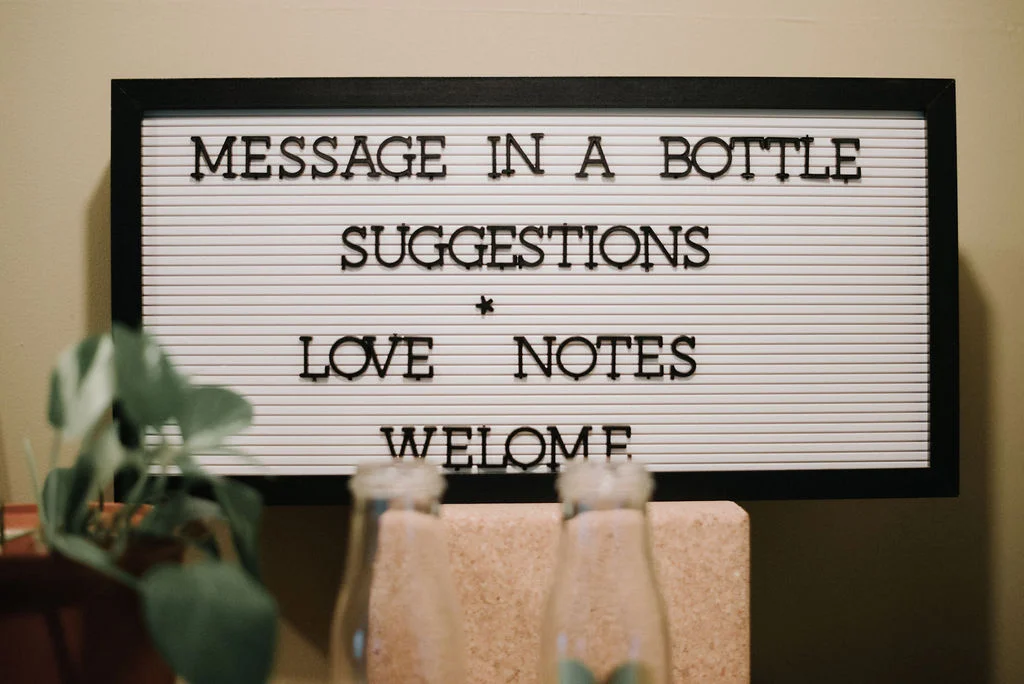 MESSAGE IN A BOTTLE
SUGGESTIONS
*
LOVE NOTES
WELOME